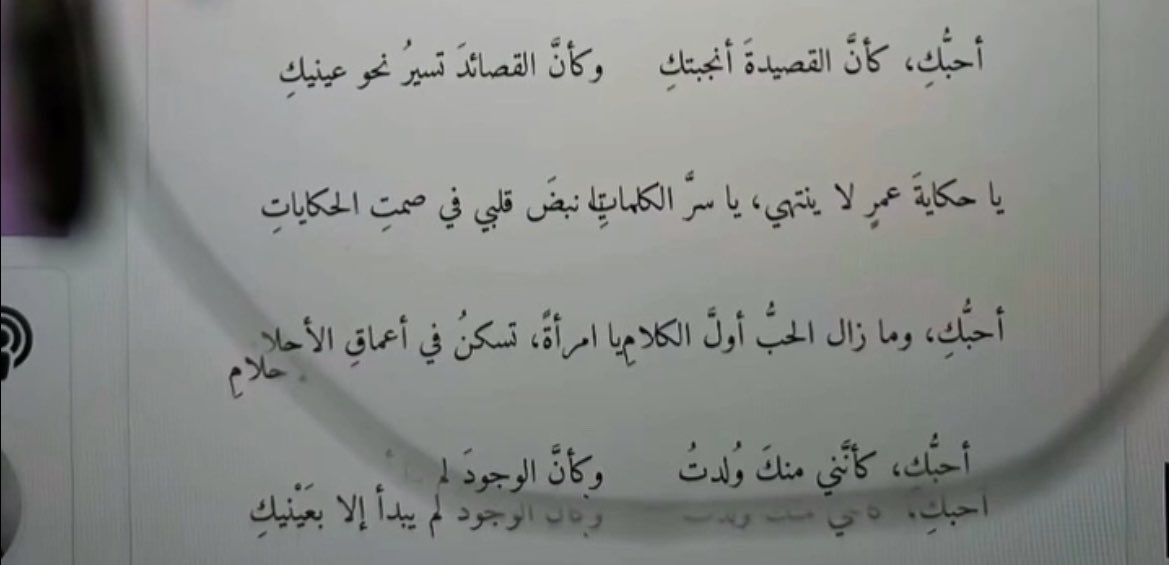 أحبُّكِ، كأنَّ القصيدةَ أنجبتكِ وكأنَّ القصائدَ تسيرُ نحو عينيكِ
يا حكايةَ عمرٍ لا ينتهي، يا سرَّ الكلماتِ نبضَ قلبي في صمتِ الحكاياتِ
أحبُّكِ، وما زال الحبُّ أولَّ الكلامِ يا امرأةً، تسكنُ في أعماقِ الأحلامِ
أحبُّكِ، كأنَّني منكَ وُلدتُ وكأنَّ الوجودَ لم يبدأ إلا بعَيْنيكِ